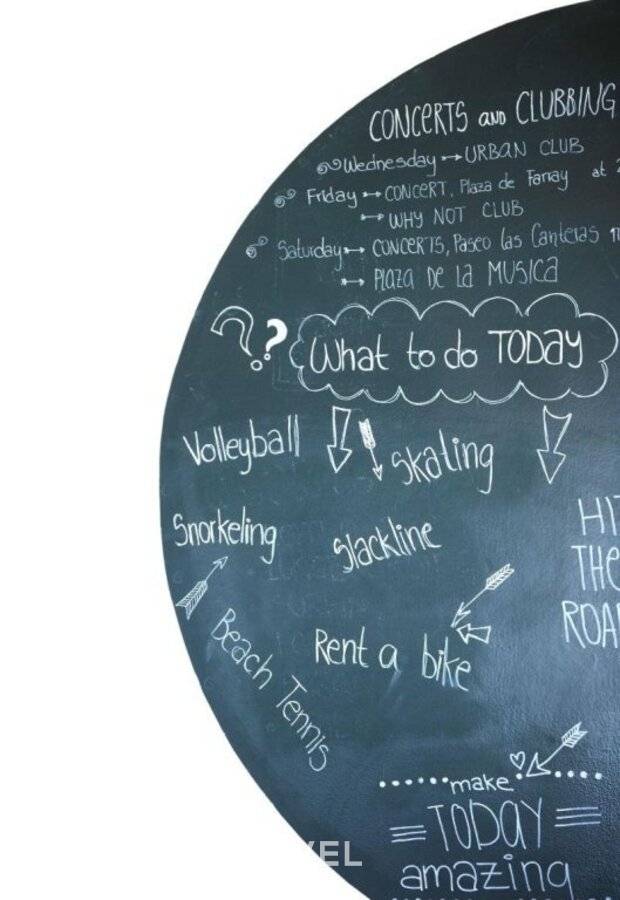 CONCERTS AND CLUBBING
Wednesday URBAN CLUB
Friday CONCERT, Plaza de Farray at
WHY NOT CLUB
Saturday CONCERTS, Paseo las Canteras
PLAZA DE LA MUSICA
??
What to do TODAY
Volleyball
Skating
Snorkeling
Slackline
HIT
THE
ROAD
Beach Tennis
Rent a bike
make
TODAY
amazing
VEL